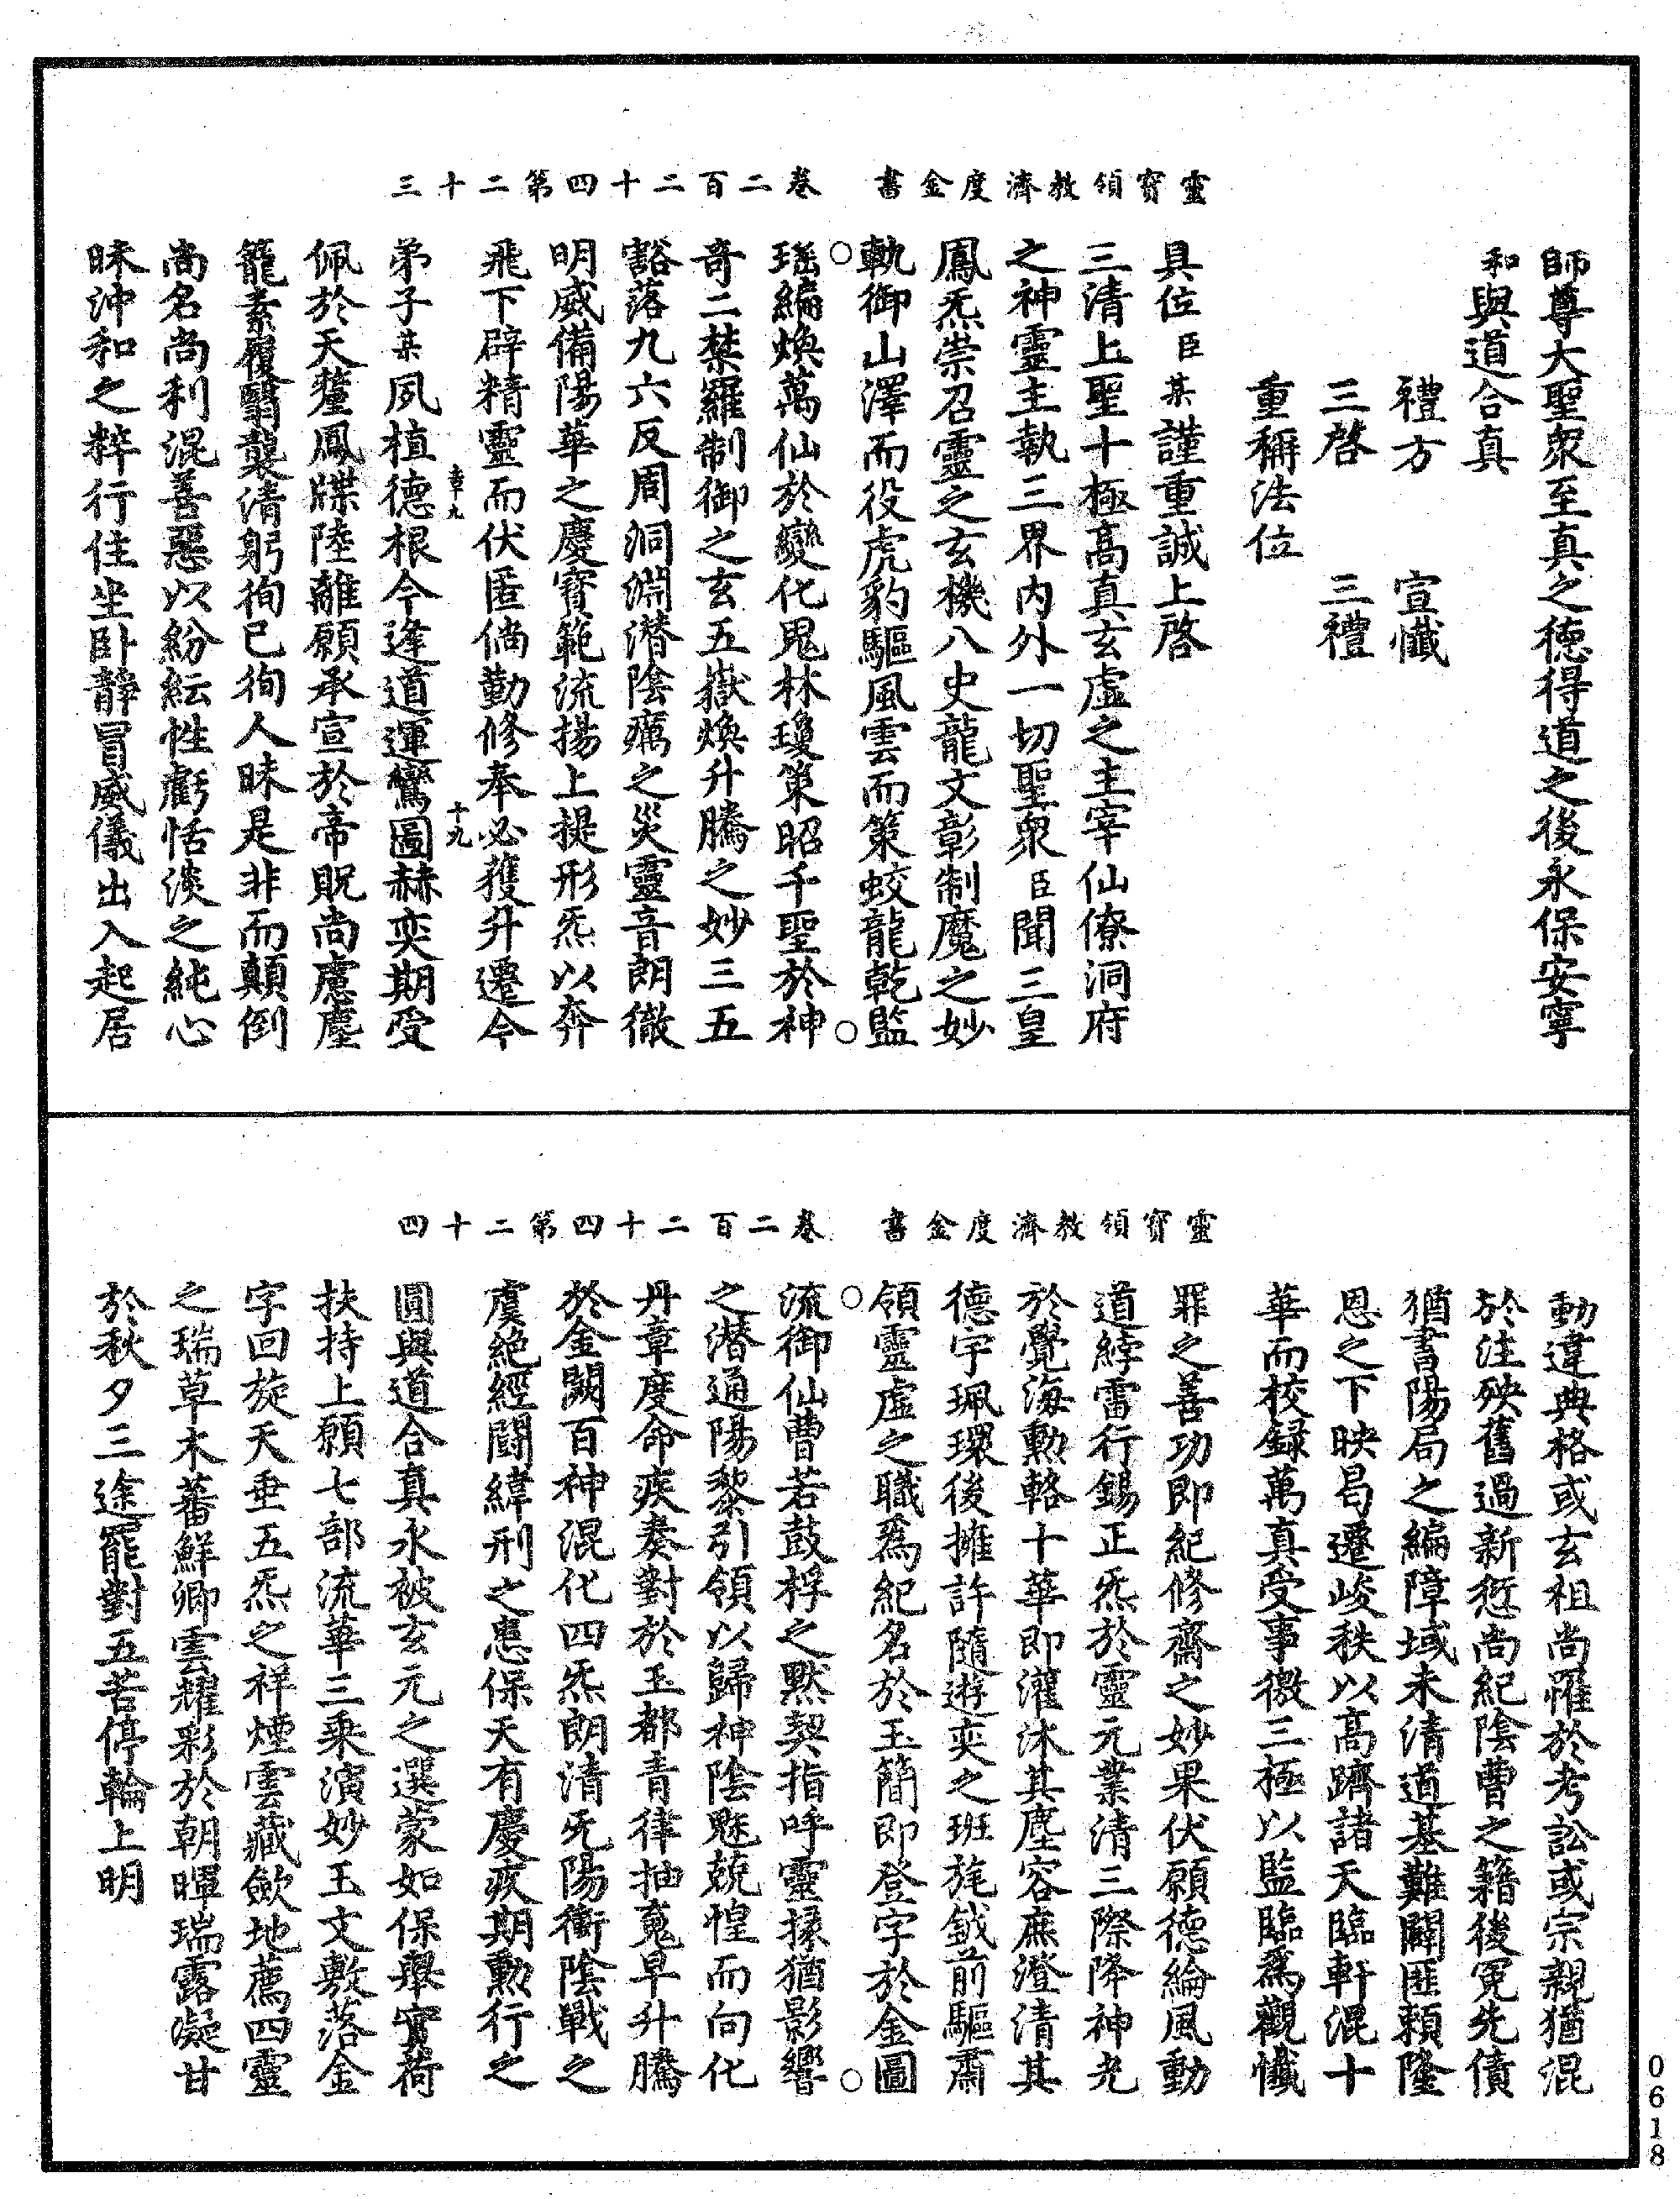 靈寶領教濟度金書　卷二百二十四第二十三
師尊大聖衆至真之德得道之後永保安寧
和與道合真
禮方　宣懺
三啓　三禮
重稱法位
具位臣某謹重誠上啓
三清上聖十極高真玄虛之主宰仙僚洞府
之神靈主執三界內外一切聖衆臣聞三皇
鳳炁崇召靈之玄機八史龍文彰制魔之妙
軌御山澤而役虎豹驅風雲而策蛟龍乾監
瑤編煥萬仙於變化鬼林瓊策昭千聖於神
奇二禁羅制御之玄五嶽煥升騰之妙三五
豁落九六反周洞淵潛陰癘之災靈音朗徹
明威備陽華之慶寶範流揚上提形炁以奔
飛下辟精靈而伏匿倘勤修奉必獲升遷今
幸九　十九
弟子某夙植德根今逢道運鸞圖赫奕期受
佩於天釐鳳牒陸離願承宣於帝貺尚慮塵
籠素履翳襲清躬徇已徇人昧是非而顛倒
尚名尚利混善惡以紛紜性虧恬淡之純心
昧沖和之粹行住坐卧靜冒威儀出入起居
靈寶領教濟度金書　卷二百二十四第二十四
動違典格或玄祖尚罹於考訟或宗親猶混
於注殃舊過新愆尚紀陰曹之籍後冤先債
猶書陽局之編障域未清道基難闢匪賴隆
恩之下映曷遷峻秩以高躋諸天臨軒混十
華而校録萬真受事徹三極以監臨爲觀懺
罪之善功即紀修齋之妙果伏願德綸風動
道綍雷行錫正炁於靈元業清三際降神光
於覺海勳輅十華即灌沐其塵容庶澄清其
德宇珮環後擁許隨遊奕之班旄鉞前驅肅
領靈虛之職爲紀名於玉簡即登字於金圖
流御仙曹若鼓桴之默契指呼靈掾猶影響
之潛通陽黎引領以歸神陰魅兢惶而向化
丹章度命疾奏對於玉都青律抽䰟早升騰
於金闕百神混化四炁朗清旡陽衝陰戰之
虞絶經鬪緯刑之患保天有慶疾期勳行之
圓與道合真永被玄元之選蒙如保舉實荷
扶持上願七部流華三乘演妙玉文敷落金
字回旋天垂五炁之祥煙雲藏歛地薦四靈
之瑞草木蕃鮮卿雲耀彩於朝暉瑞露凝甘
於秋夕三途罷對五苦停輪上明
0618